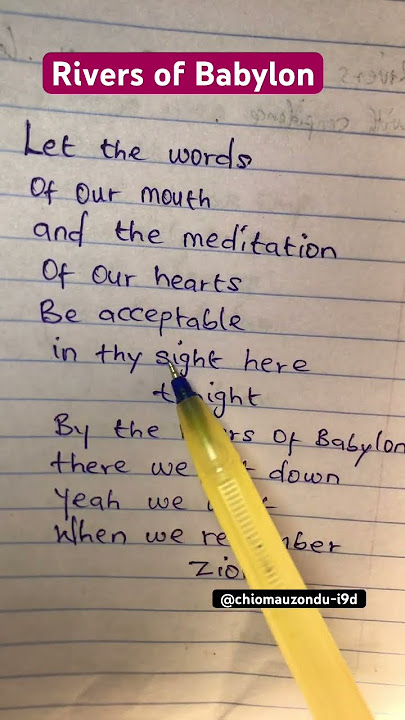 Rivers of Babylon
Let the words
Of our mouth
and the meditation
Of our hearts
Be acceptable
in thy sight here
t night
By the rs Of Babylon
there we t down
Yeah we
When we re ber
Zion
@chiomauzondu-i9d